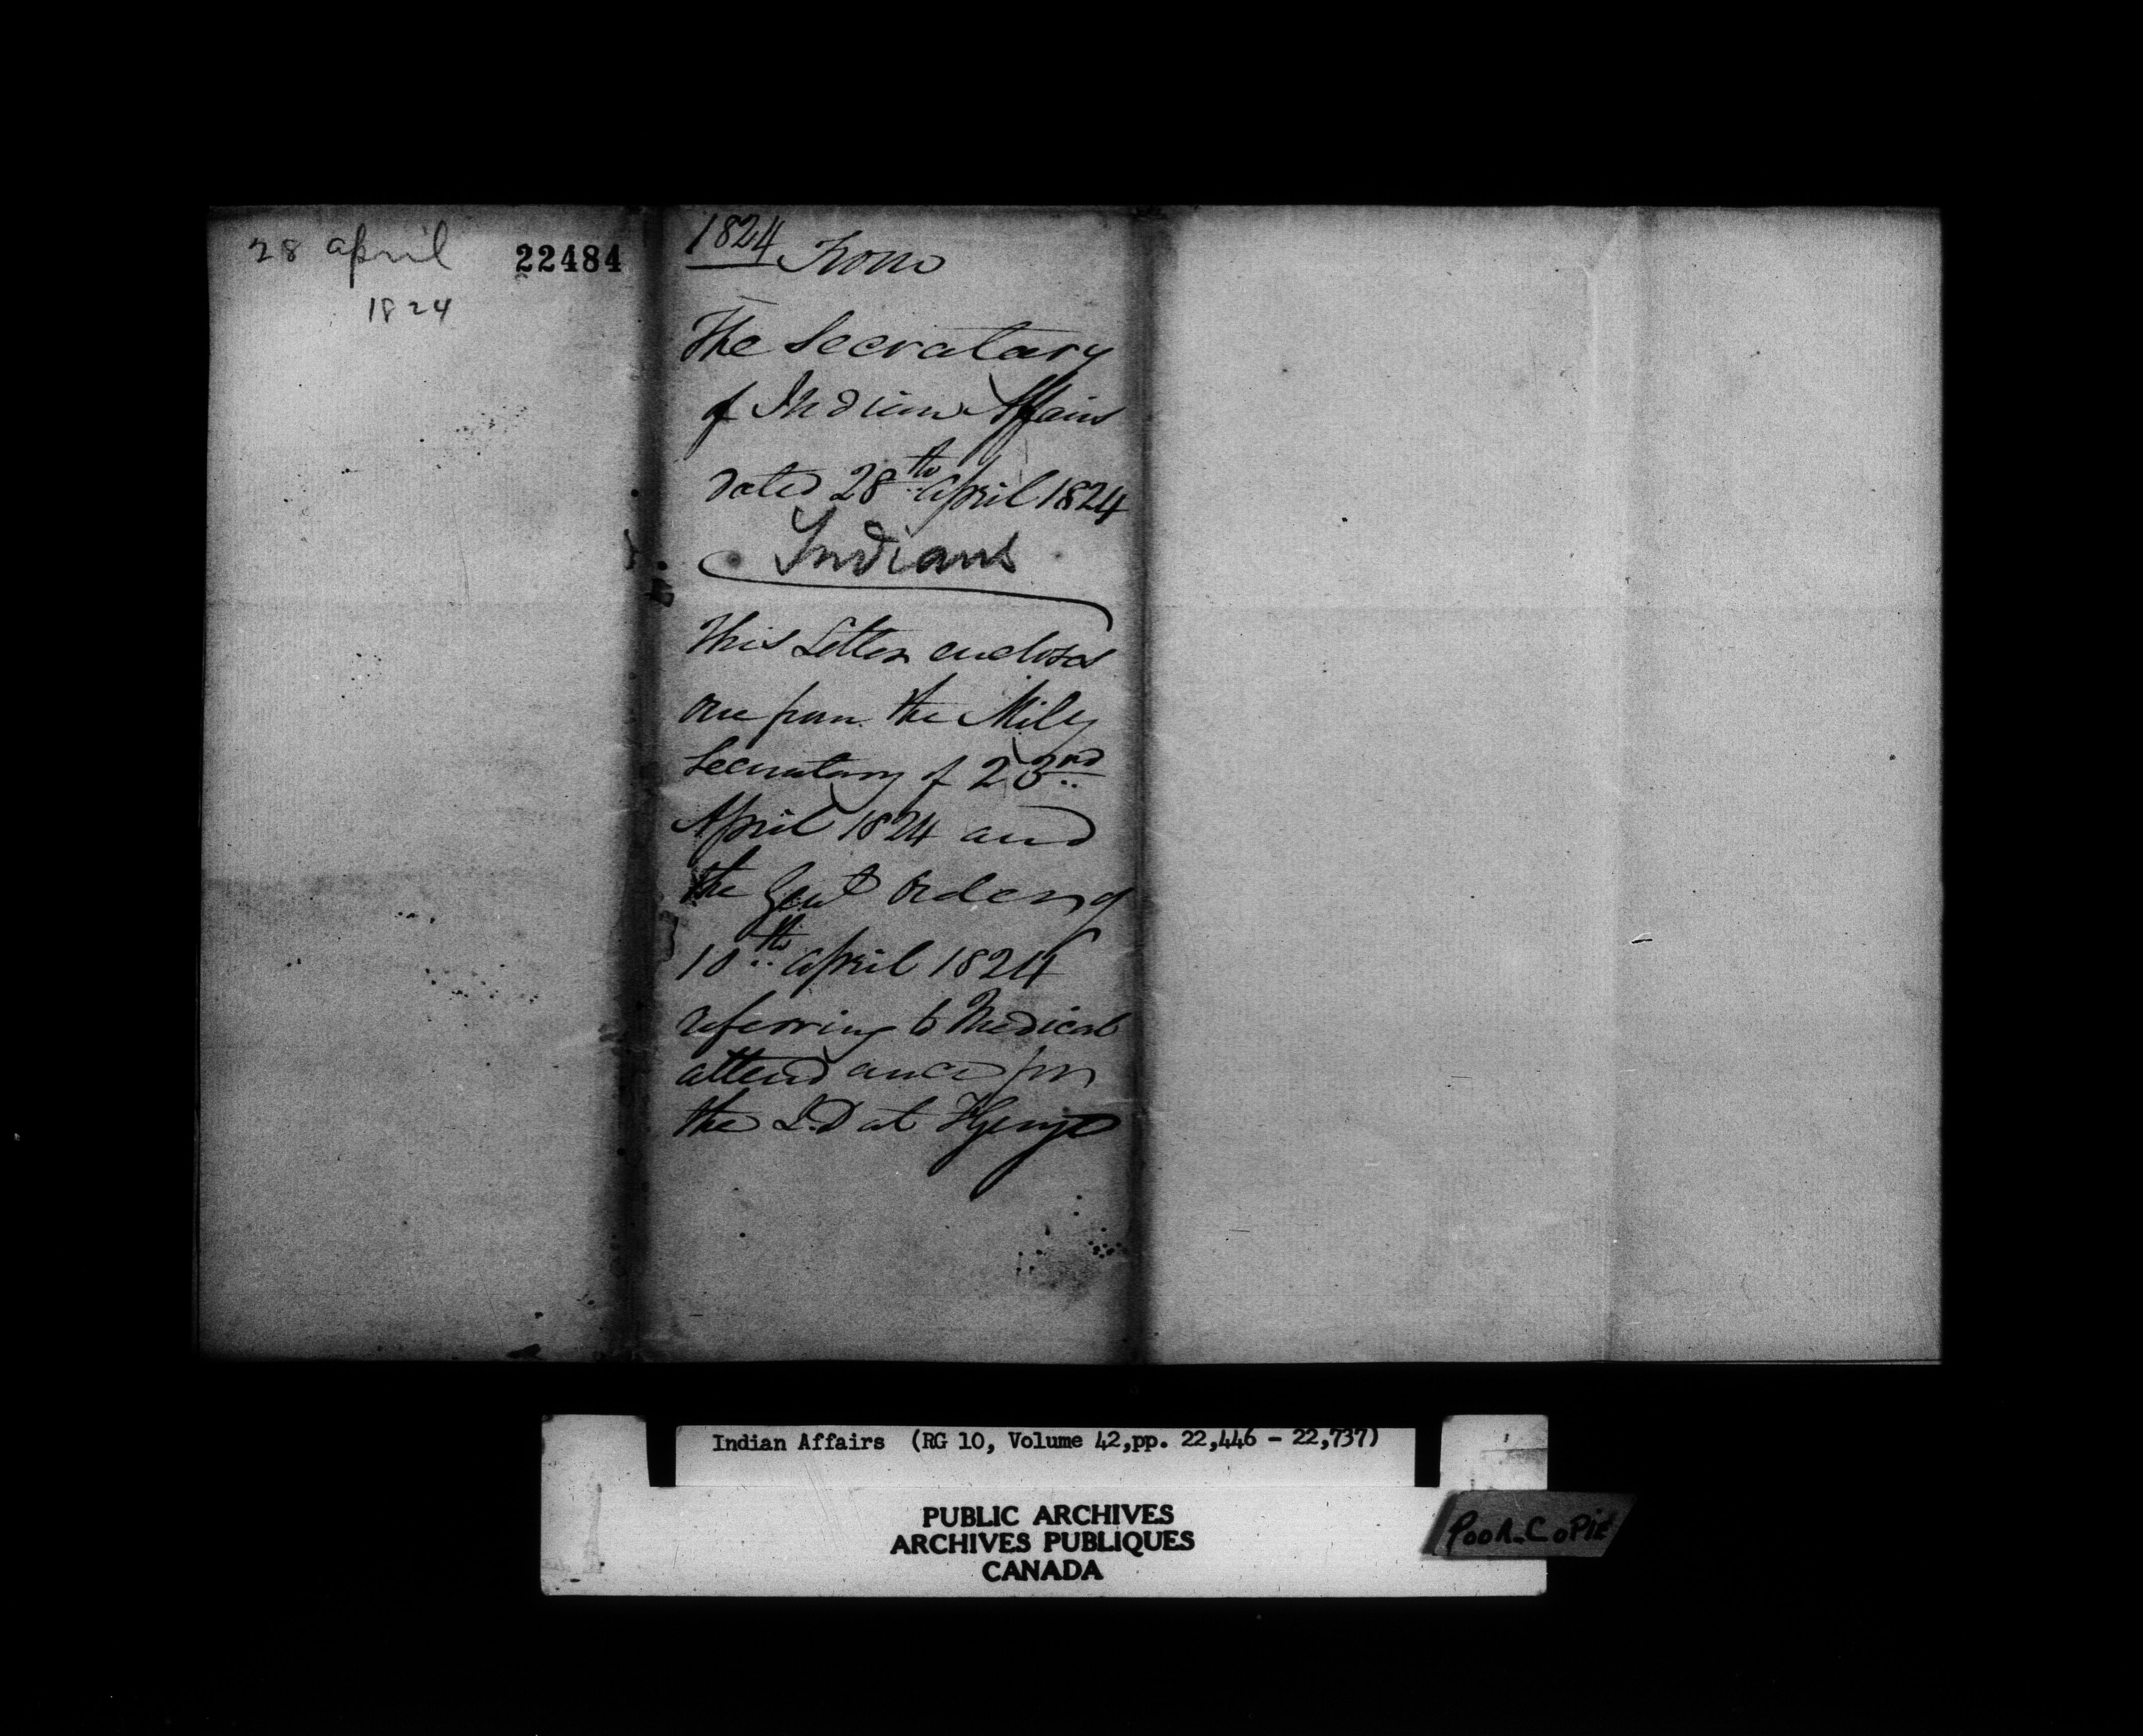 28 april
1824
22484
1824 From
The Secratary
of Indian Affairs
dated 28th april 1824
Indians
This Letter encloses
one from the Mily
Secretary of 23rd
April 1824 and
the Genl Orders of
10th april 1824
referring to Medical
attendance for
the I.D at
Indian Affairs (RG 10, Volume 42,pp. 22,446 - 22,737)
PUBLIC ARCHIVES
ARCHIVES PUBLIQUES
CANADA
POOR-COPIE